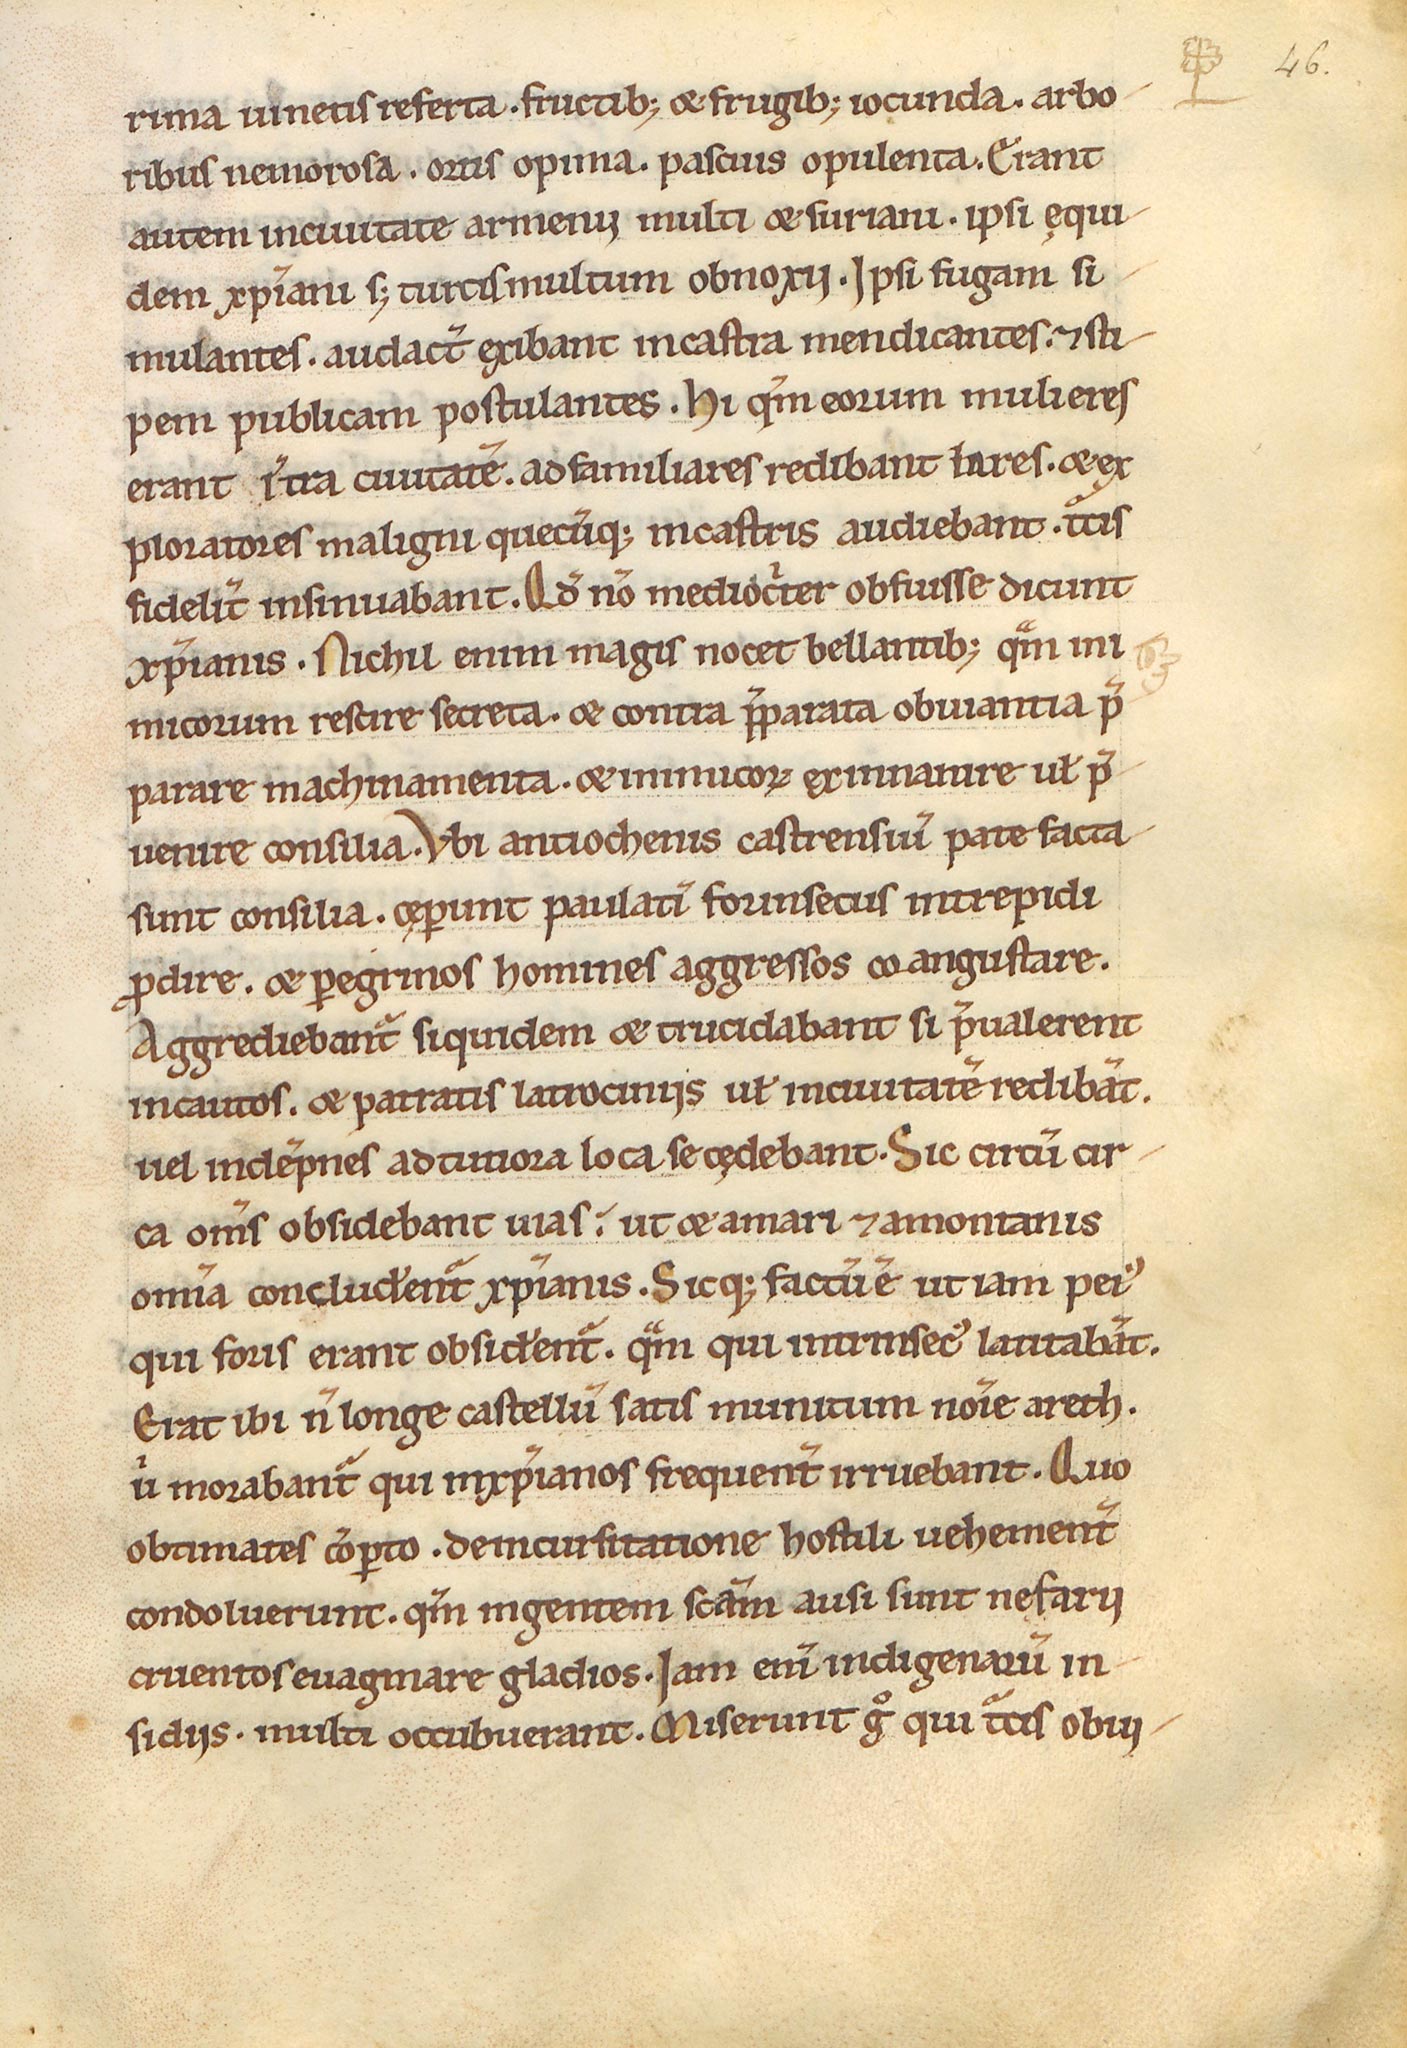 46.
rima uinetis referta. fructib; & frugib; iocunda. arbo-
ribus nemorosa. ortis opima. pascuis opulenta. Erant
autem inciuitate armenij multi & suriani. ipsi ęqui-
dem xp̄iani s; turcis multum obnoxij. Ipsi fugam si-
mulantes. audact̄ exibant incastra mendicantes. ⁊ sti-
pem publicam postulantes. Hi qm̄ eorum mulieres
erant īt̃ra ciuitatē. adfamiliares redibant lares. & ex
ploratores maligni quecūq; incastris audiebant. t̃cis
fidelit̄ insinuabant. Qd̄ nō mediocr̄ter obfuisse dicunt
xp̄ianis. Nichil enim magis nocet bellantib; qᵃm ini
micorum rescire secreta. & contra p̄parata obuiantia p̄
parare machinamenta. & inimicoꝝ exinnanire uł p̄-
uenire consilia. Vbi antiochenis castrensiū pate facta-
sunt consilia. cęꝑunt paulatī forinsecus intrepidi
ꝓdire. & ꝑegrinos homines aggressos coangustare.
Aggrediebant̄ siquidem & trucidabant si p̄ualerent
incautos. & patratis latrocinijs uł inciuitatē redibāt.
uel indēpnes adtutiora loca secędebant. Sic circū cir-
ca om̄s obsidebant uias. ut & amari ⁊ amontanis
om̄ia concludēent̄ xp̄ianis. Sicq; factū ē ut iam peiꝰ
qui foris erant obsidēent̄. qᵃm qui intrinsecꝰ latitabāt.
Erat ibi n̄ longe castellū satis munitum noīe areth.
uⁱ morabant̄ qui inxp̄ianos frequent̄ irruebant. Quo
obtimates cōꝑto. deincursitatione hostili uehement̄
condoluerunt. qm̄ ingentem scām ausi sunt nefarij
cruentos euaginare gladios. Iam enī indigenarū in-
sidijs. multi occubuerant. Miserunt gᵒ qui t̃cis obuij-